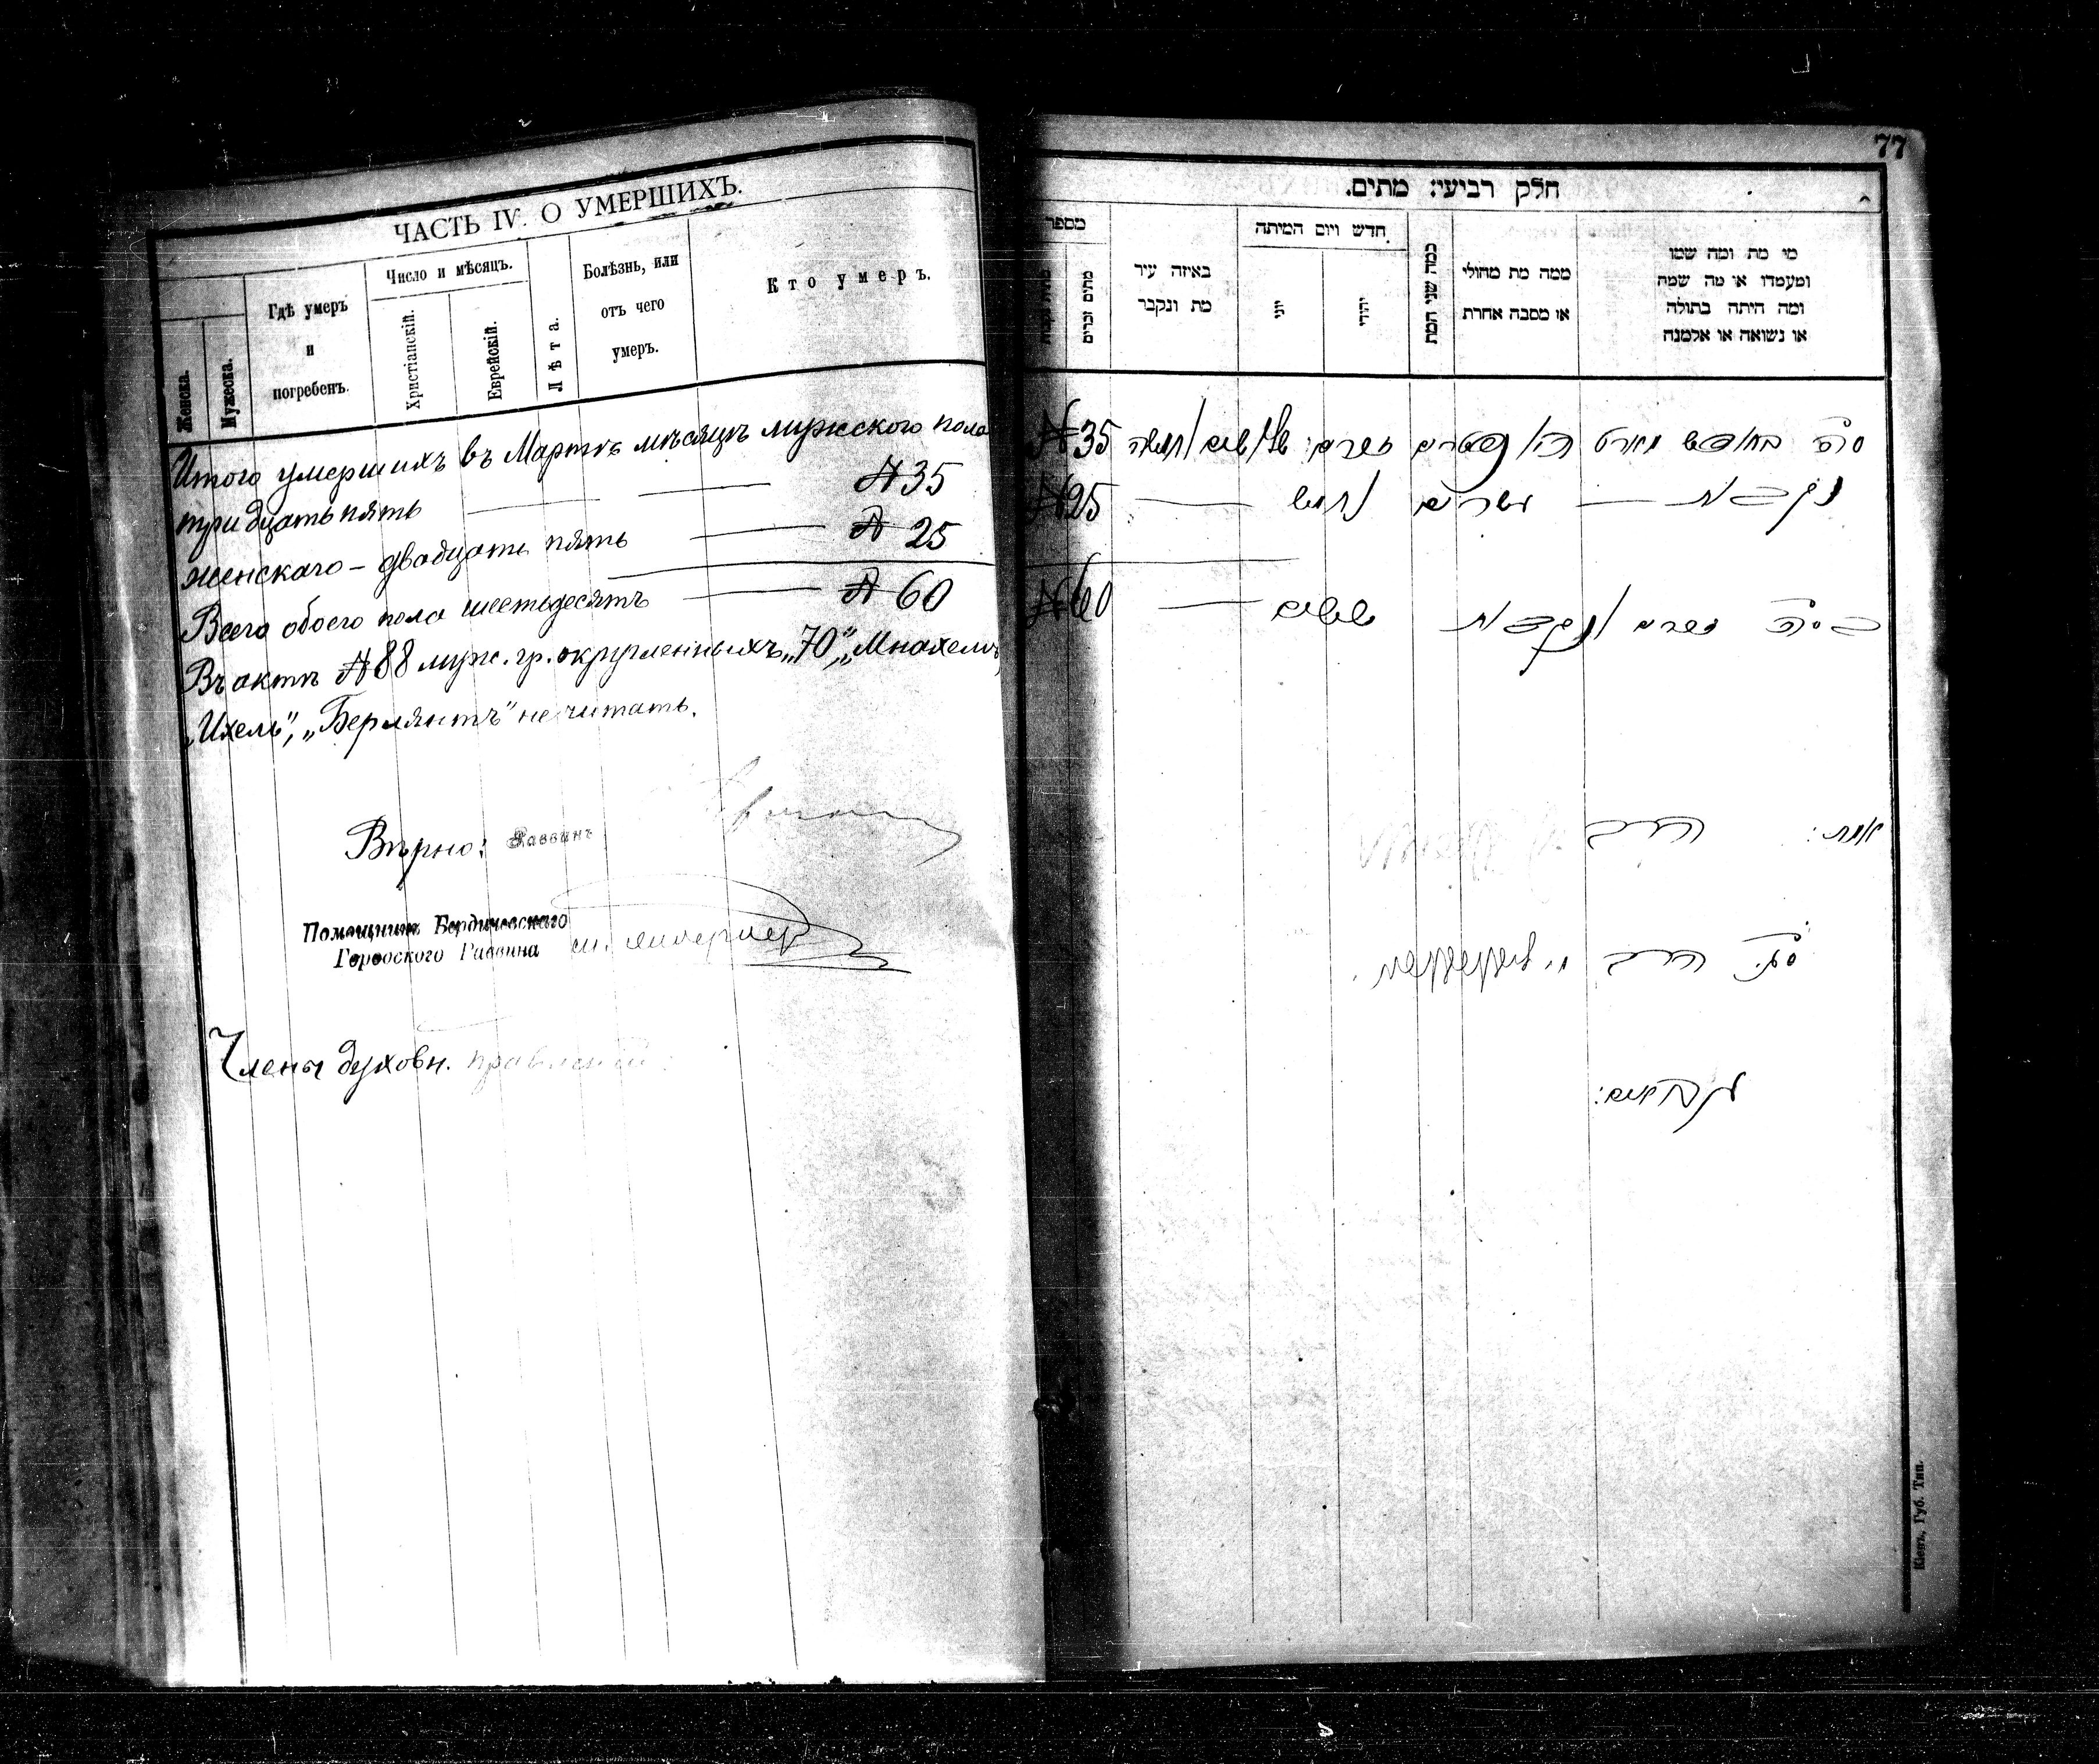 ЧАСТЬ IV. О УМЕРШИХЪ.
Женска.
Мужеска.
Гдѣ умеръ
и
погребенъ
Число и мѣсяцъ.
Христіанскій.
Еврейскій.
Лѣта.
Болѣзнь, или
отъ чего
умеръ.
Кто умеръ.
Итого умершихъ въ Мартѣ мѣсяцѣ мужского пола
тридцать пять № 35
женскаго – двадцать пять № 25
Всего обоего пола шестьдесятъ № 60
Въ актѣ № 88 муж. гр. округленныхъ „70“, „Мнахемъ,
„Ихель“, „Берлянтъ“ не читать.
Вѣрно: Раввинъ
Помощникъ Бердичевскаго
Городского Раввина
Члены духовн. правленія:
77
חלק רביעי: מתים.
מספר
מתים זכרים
באיזה עיר
מת ונקבר
חדש ויום המיתה
יוני
יהודי
כמה שני המת
ממה מת מחולי
או מסבה אחרת
מי מת ומה שמו
ומעמדו או מה שמה
ומה היתה בתולה
או נשואה או אלמנה
בחודש מארט זכרים: שלשים וחמשה № 35
נקבות — עשרים וחמש — № 25
זכרים ונקבות ששים — № 60
אמת: הרב
סגן הרב
Кіевъ, Губ. Тип.